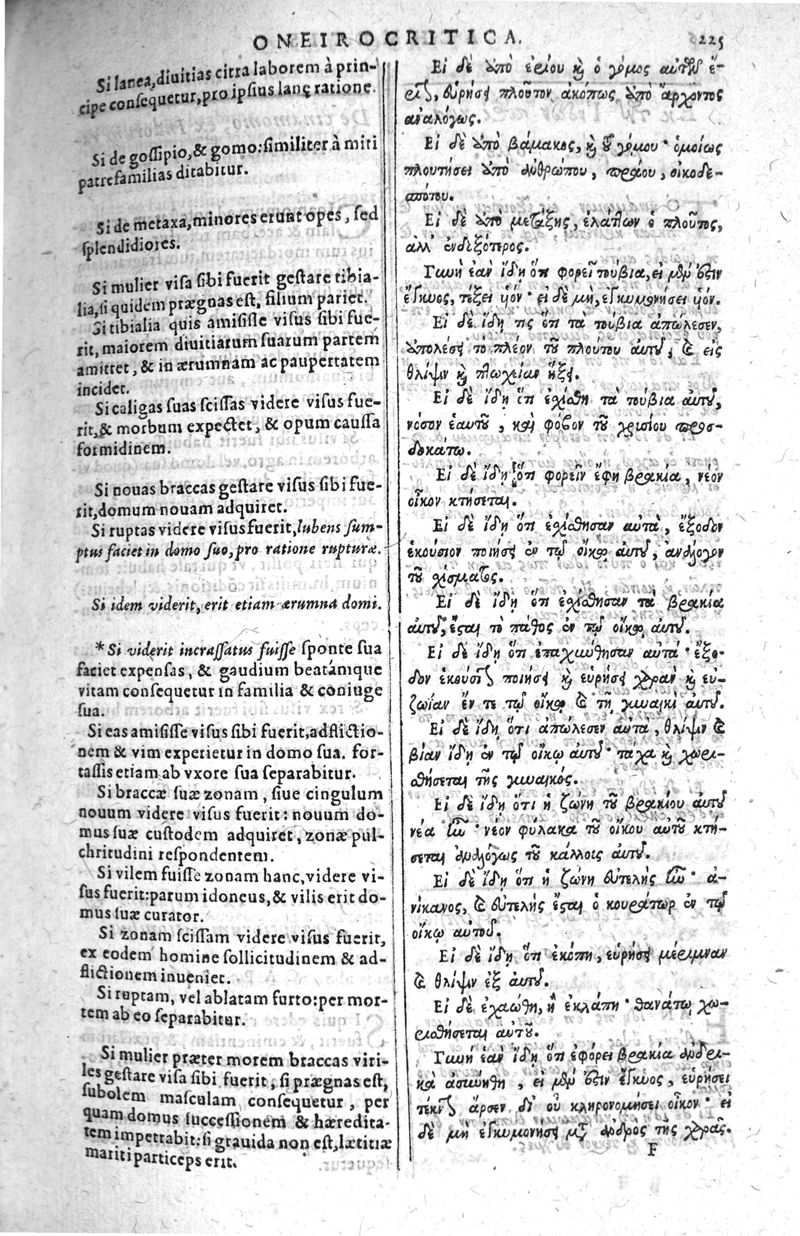 ONEIROCRITICA. 225
Si lanea, diuitias citra laborem à prin-
cipe consequetur, pro ipsius lanę ratione.
Si de gossipio, & gomo: similiter à miti
patrefamilias ditabitur.
Si de metaxa, minores erunt opes, sed
splendidiores.
Si mulier visa sibi fuerit gestare tibia-
lia, si quidem prægnas est, filium pariet.
Si tibialia quis amisisse visus sibi fue-
rit, maiorem diuitiarum suarum partem
amittet, & in ærumnam ac paupertatem
incidet.
Si caligas suas scissas videre visus fue-
rit, & morbum expectet, & opum caussa
formidinem.
Si nouas braccas gestare visus sibi fue-
rit, domum nouam adquiret.
Si ruptas videre visus fuerit, lubens sum-
ptus faciet in domo suo, pro ratione rupturæ.
Si idem viderit, erit etiam ærumna domi.
*Si viderit incrassatus fuisse sponte sua
faciet expensas, & gaudium beatámque
vitam consequetur in familia & coniuge
sua.
Si eas amisisse visus sibi fuerit, adflictio-
nem & vim experietur in domo sua. for-
tassis etiam ab vxore sua separabitur.
Si braccæ suæ zonam, siue cingulum
nouum videre visus fuerit: nouum do-
mus suæ custodem adquiret, zonæ pul-
chritudini respondentem.
Si vilem fuisse zonam hanc, videre vi-
sus fuerit: parum idoneus, & vilis erit do-
mus suæ curator.
Si zonam scissam videre visus fuerit,
ex eodem homine sollicitudinem & ad-
flictionem inueniet.
Si ruptam, vel ablatam furto: per mor-
tem ab eo separabitur.
Si mulier præter morem braccas viri-
les gestare visa sibi fuerit, si prægnas est,
subolem masculam consequetur, per
quam domus successionem & hæredita-
tem impetrabit: si grauida non est, lætitiæ
mariti particeps erit.
Εἰ δὲ ὑπὸ ἐρίου καὶ ὁ γόμος αὐτῶν ἔ-
ρις, εὑρήσει πλοῦτον ἀκόπως ὑπὸ ἄρχοντος
ἀναλόγως.
Εἰ δὲ ὑπὸ βάμακος, καὶ ὁ γόμου· ὁμοίως
πλουτήσει ὑπὸ ἀνθρώπου, πραέου, οἰκοδε-
σπότου.
Εἰ δὲ ὑπὸ μετάξης, ἐλάττων ὁ πλοῦτος,
ἀλλ' ἐνδοξότερος.
Γυνὴ ἐὰν ἴδῃ ὅτι φορεῖ τούβια, εἰ μὲν ἔστιν
ἔγκυος, τέξει υἱόν· εἰ δὲ μὴ, ἐγκυμονήσει υἱόν.
Εἰ δὲ ἴδῃ τις ὅτι τὰ τούβια ἀπώλεσεν,
ἀπολέσει τὸ πλέον τοῦ πλούτου αὐτοῦ, καὶ εἰς
θλίψιν καὶ πτωχείαν ἥξει.
Εἰ δὲ ἴδῃ ὅτι ἐσχίσθη τὰ τούβια αὐτοῦ,
νόσον ἑαυτοῦ, καὶ φόβον τοῦ χρυσίου προσ-
δοκάτω.
Εἰ δὲ ἴδῃ ὅτι φορεῖν ἔφη βρακία, νέον
οἶκον κτήσεται.
Εἰ δὲ ἴδῃ ὅτι ἐσχίσθησαν αὐτὰ, ἔξοδον
ἑκούσιον ποιήσει ἐν τῷ οἴκῳ αὐτοῦ, ἀνάλογον
τοῦ σχίσματος.
Εἰ δὲ ἴδῃ ὅτι ἐσχίσθησαν τὰ βρακία
αὐτοῦ, ἔσται τὸ πάθος ἐν τῷ οἴκῳ αὐτοῦ.
Εἰ δὲ ἴδῃ ὅτι ἐπαχύνθησαν αὐτὰ· ἔξο-
δον ἑκουσίως ποιήσει καὶ εὑρήσει χαρὰν καὶ εὐ-
ζωΐαν ἔν τε τῷ οἴκῳ καὶ τῇ γυναικὶ αὐτοῦ.
Εἰ δὲ ἴδῃ ὅτι ἀπώλεσεν αὐτὰ, θλίψιν καὶ
βίαν ἴδῃ ἐν τῷ οἴκῳ αὐτοῦ· τάχα καὶ χωρι-
σθήσεται τῆς γυναικός.
Εἰ δὲ ἴδῃ ὅτι ἡ ζώνη τοῦ βρακίου αὐτοῦ
νέα ἦν· νέον φύλακα τοῦ οἴκου αὐτοῦ κτή-
σεται ἀναλόγως τοῦ κάλλους αὐτοῦ.
Εἰ δὲ ἴδῃ ὅτι ἡ ζώνη εὐτελὴς ἦν· ἀ-
νίκανος, καὶ εὐτελὴς ἔσται ὁ κουράτωρ ἐν τῷ
οἴκῳ αὐτοῦ.
Εἰ δὲ ἴδῃ ὅτι ἐκόπη, εὑρήσει μέριμναν
καὶ θλίψιν ἐξ αὐτοῦ.
Εἰ δὲ ἐχαώθη, ἢ ἐκλάπη· θανάτῳ χω-
ρισθήσεται αὐτοῦ.
Γυνὴ ἐὰν ἴδῃ ὅτι ἐφόρει βρακία ἀνδρι-
κὰ ἀσυνήθη, εἰ μὲν ἔστιν ἔγκυος, εὑρήσει
τέκνον ἄρσεν δι' οὗ κληρονομήσει οἶκον· εἰ
δὲ μὴ ἐγκυμονήσει μετὰ ἀνδρὸς τῆς χαρᾶς.
F